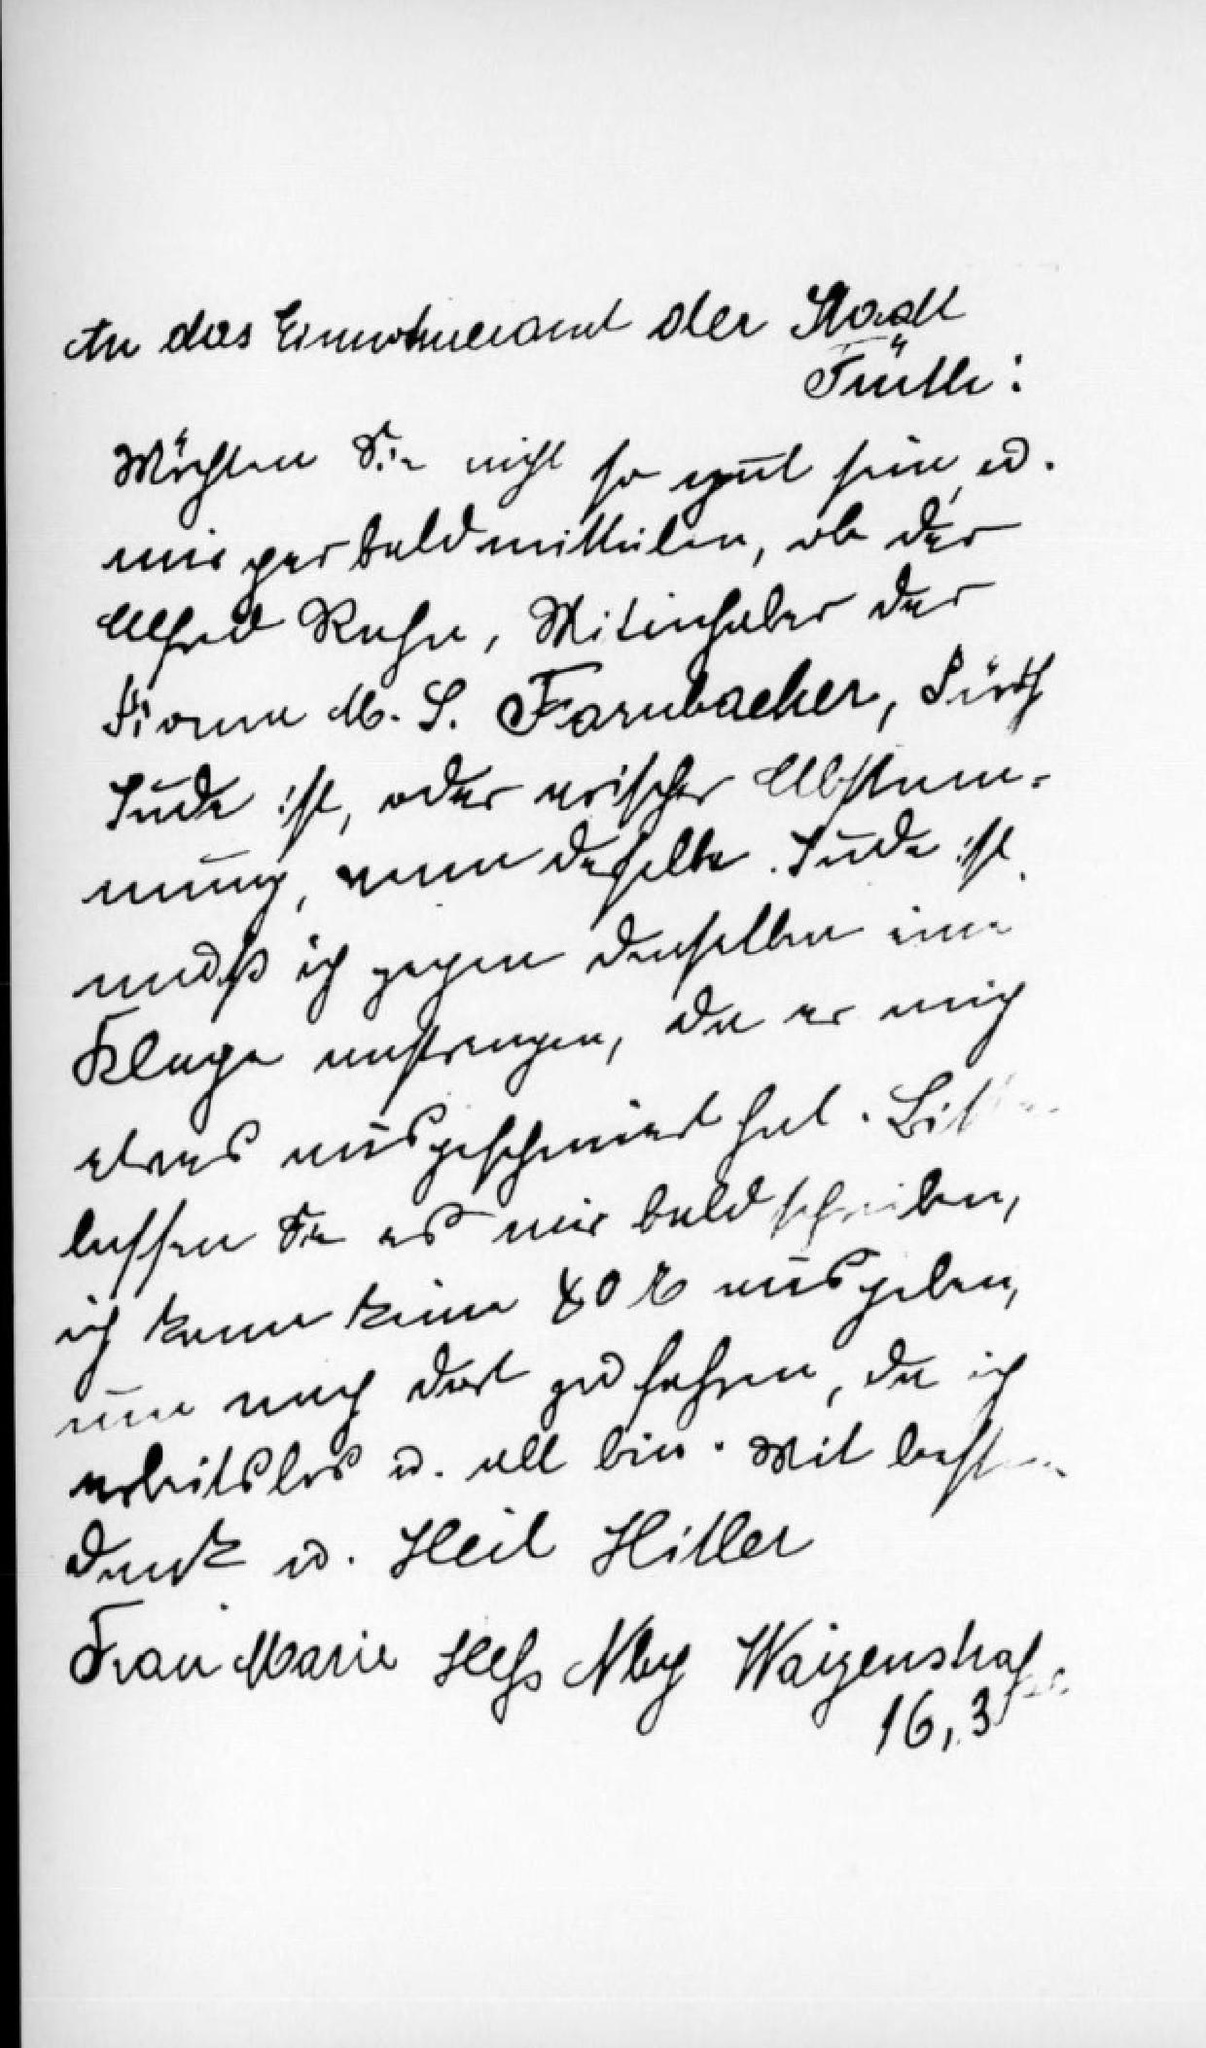 An das Einwohneramt der Stadt
Fürth:
Möchten Sie nicht so gut sein, u.
mir gar bald mitteilen, ob der
Alfred Kuhn, Mitinhaber der
Firma M. S. Farnbacher, Fürth
Jude ist, oder arischer Abstam-
mung, wenn derselbe Jude ist,
muß ich gegen denselben eine
Klage anstrengen, da er mich
etwas ausgeschmiert hat. Bitte
lassen Sie es mir bald schreiben,
ich kann keine 40 ausgeben,
um nach dort zu fahren, da ich
arbeitslos u. alt bin. Mit bestem
Dank u. Heil Hitler
Frau Marie Heß Nbg Waizenstraße
16, 3